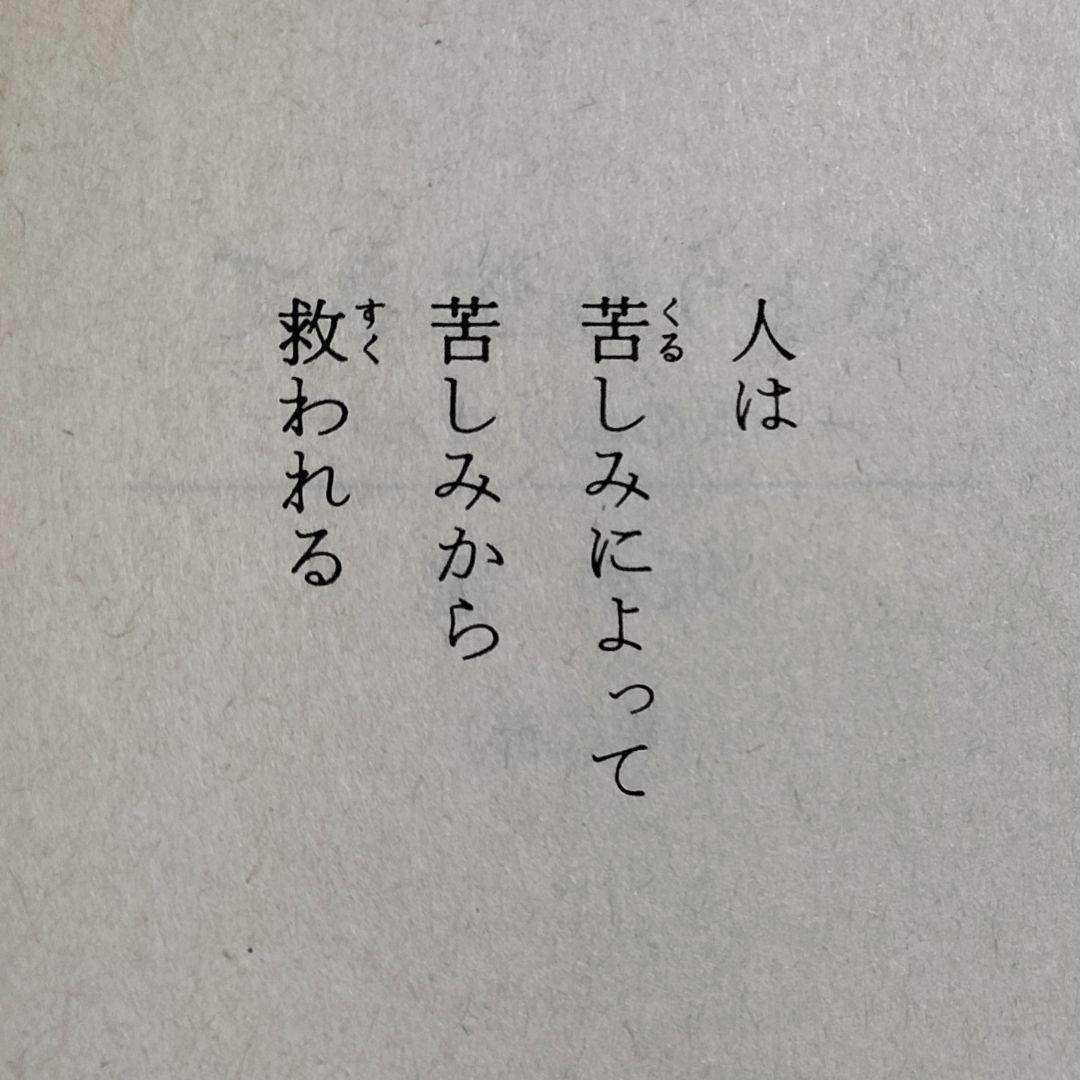 人は
苦しみによって
苦しみから
救われる